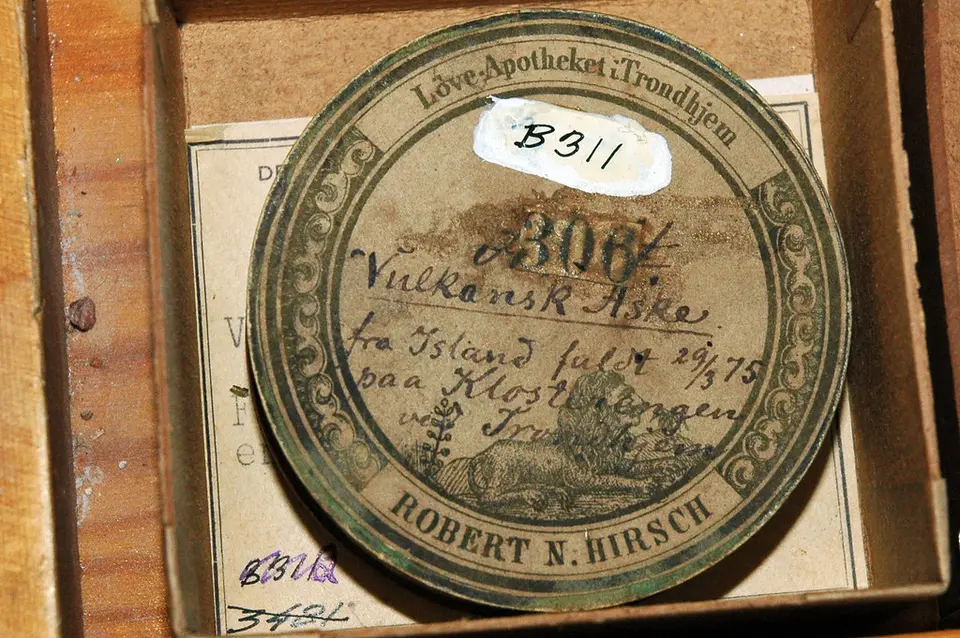 Løve-Apotheket i Trondhjem
B311
306
Vulkansk Aske
fra Island fuldt 29/3 75
paa Klosterengen
ved Trondhjem
ROBERT N. HIRSCH
DE
V
F
3421